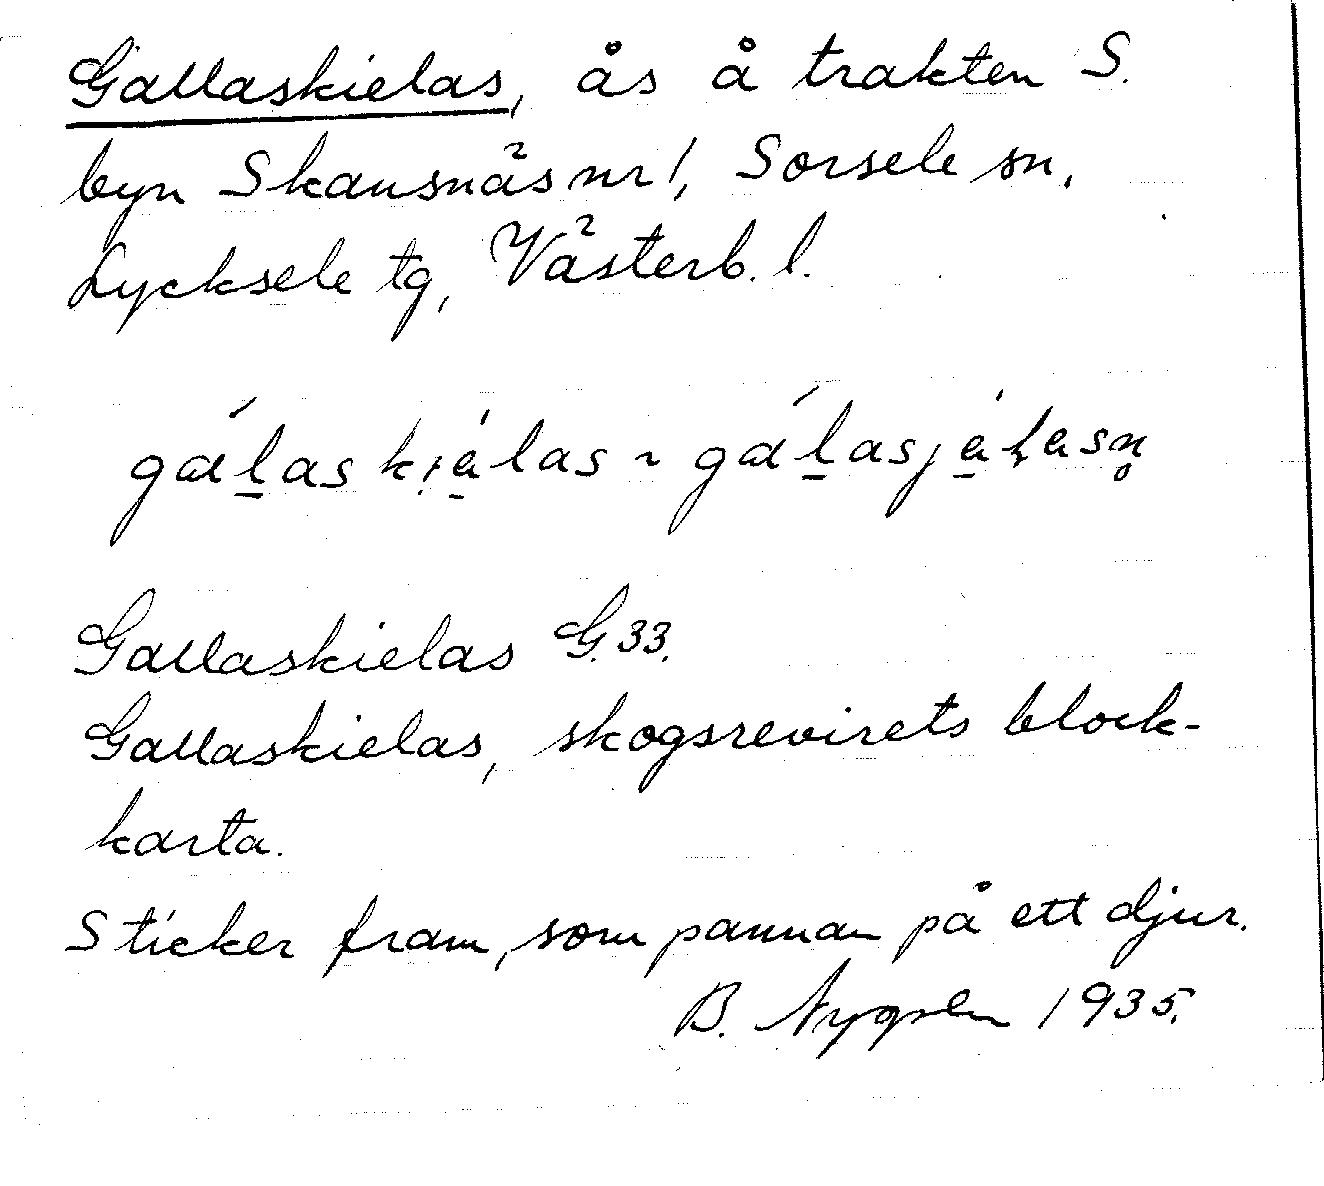 Gallaskielas, ås å trakten S.
byn Skansnäs nr 1, Sorsele sn,
Lycksele tg, Västerb. l.
gá̀l̠askjá̠las ~ gál̠asjá̠lasn̥
Gallaskielas G.33.
Gallaskielas, skogsrevirets block-
karta.
Sticker fram, som pannan på ett djur.
B. 1935.